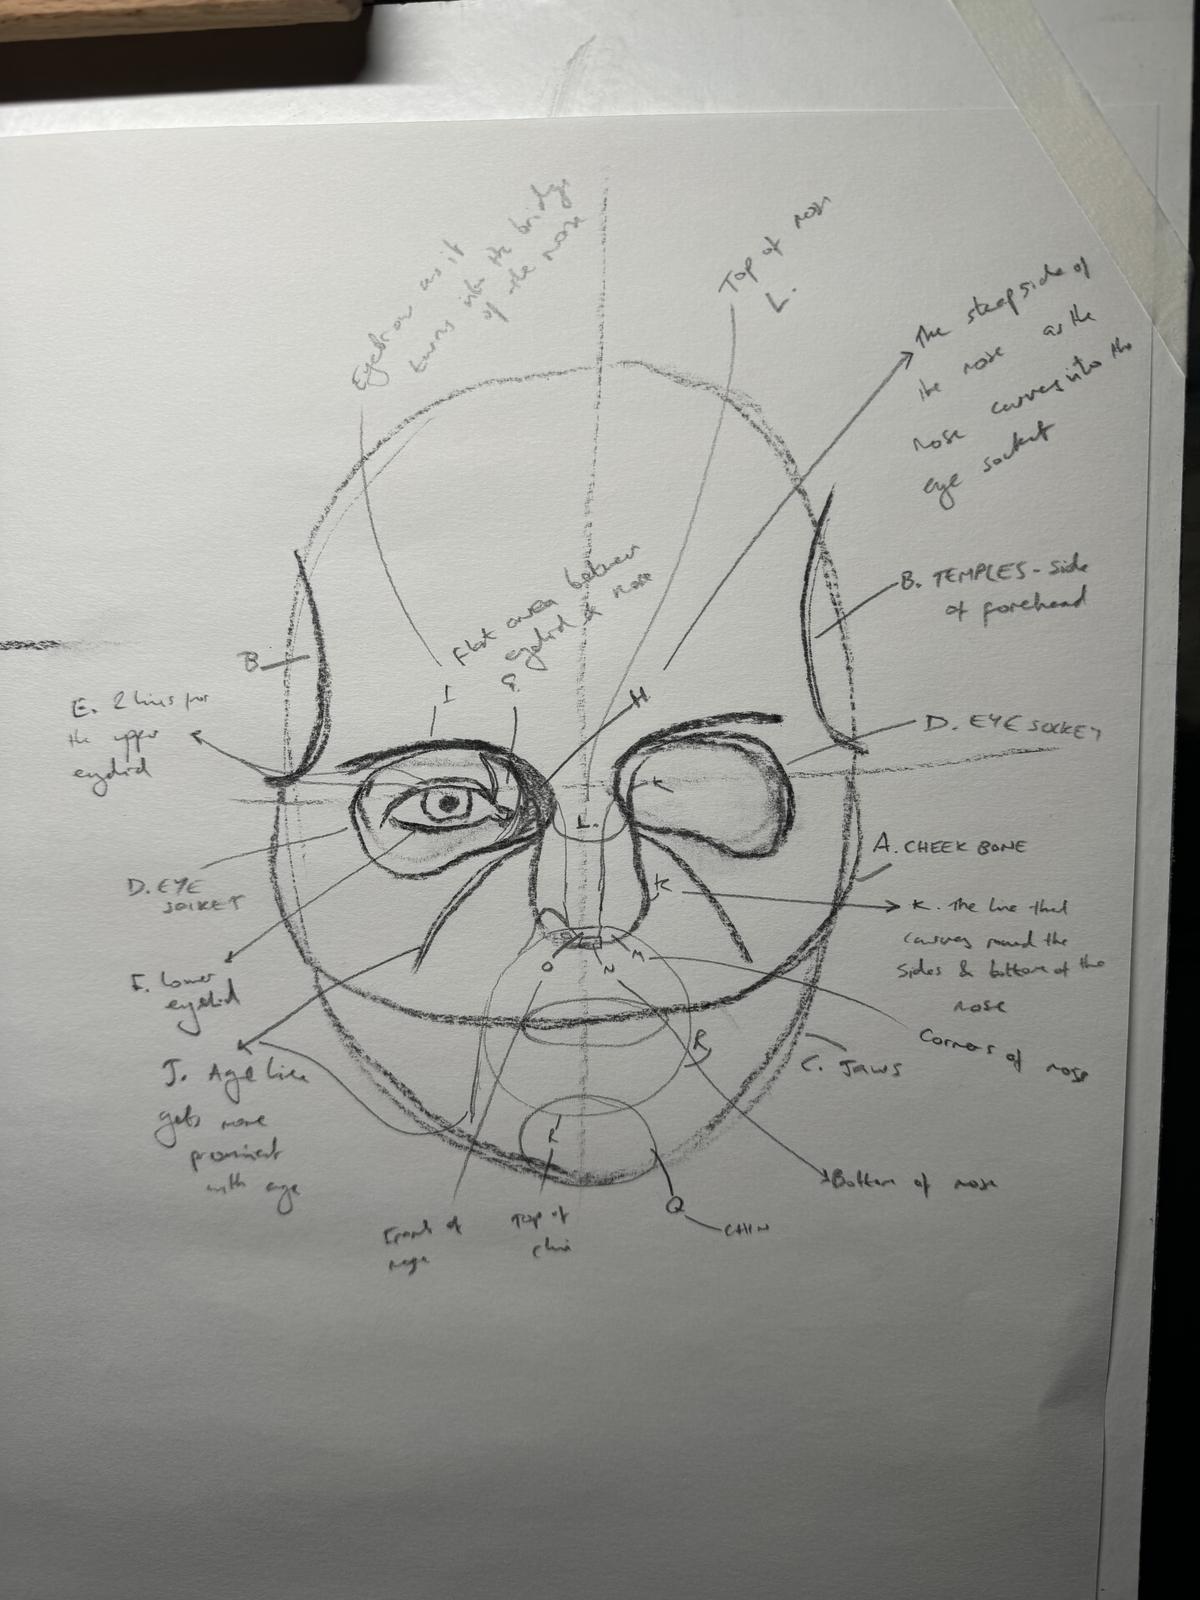 Eyebrow as it
turns into the bridge
of the nose
Top of nose
L.
The steep side of
the nose as the
nose curves into the
eye socket
B. TEMPLES - side
of forehead
Flat area between
eyelid & nose
G.
B
I
H
E. 2 lines for
the upper
eyelid
D. EYE SOCKET
K
L.
A. CHEEK BONE
D. EYE
SOCKET
K
K. The line that
curves round the
sides & bottom of the
nose
O
N
M
F. Lower
eyelid
Corners of nose
R
C. Jaws
J. Age line
gets more
prominent
with age
Bottom of nose
Q
CHIN
Front of
nose
Top of
chin